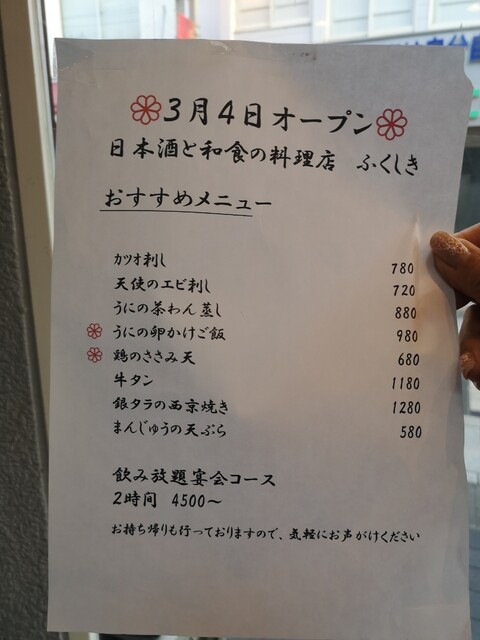 3月4日オープン
日本酒と和食の料理店 ふくしき
おすすめメニュー
カツオ刺し 780
天使のエビ刺し 720
うにの茶わん蒸し 880
うにの卵かけご飯 980
鶏のささみ天 680
牛タン 1180
銀タラの西京焼き 1280
まんじゅうの天ぷら 580
飲み放題宴会コース
2時間 4500～
お持ち帰りも行っておりますので、気軽にお声がけください